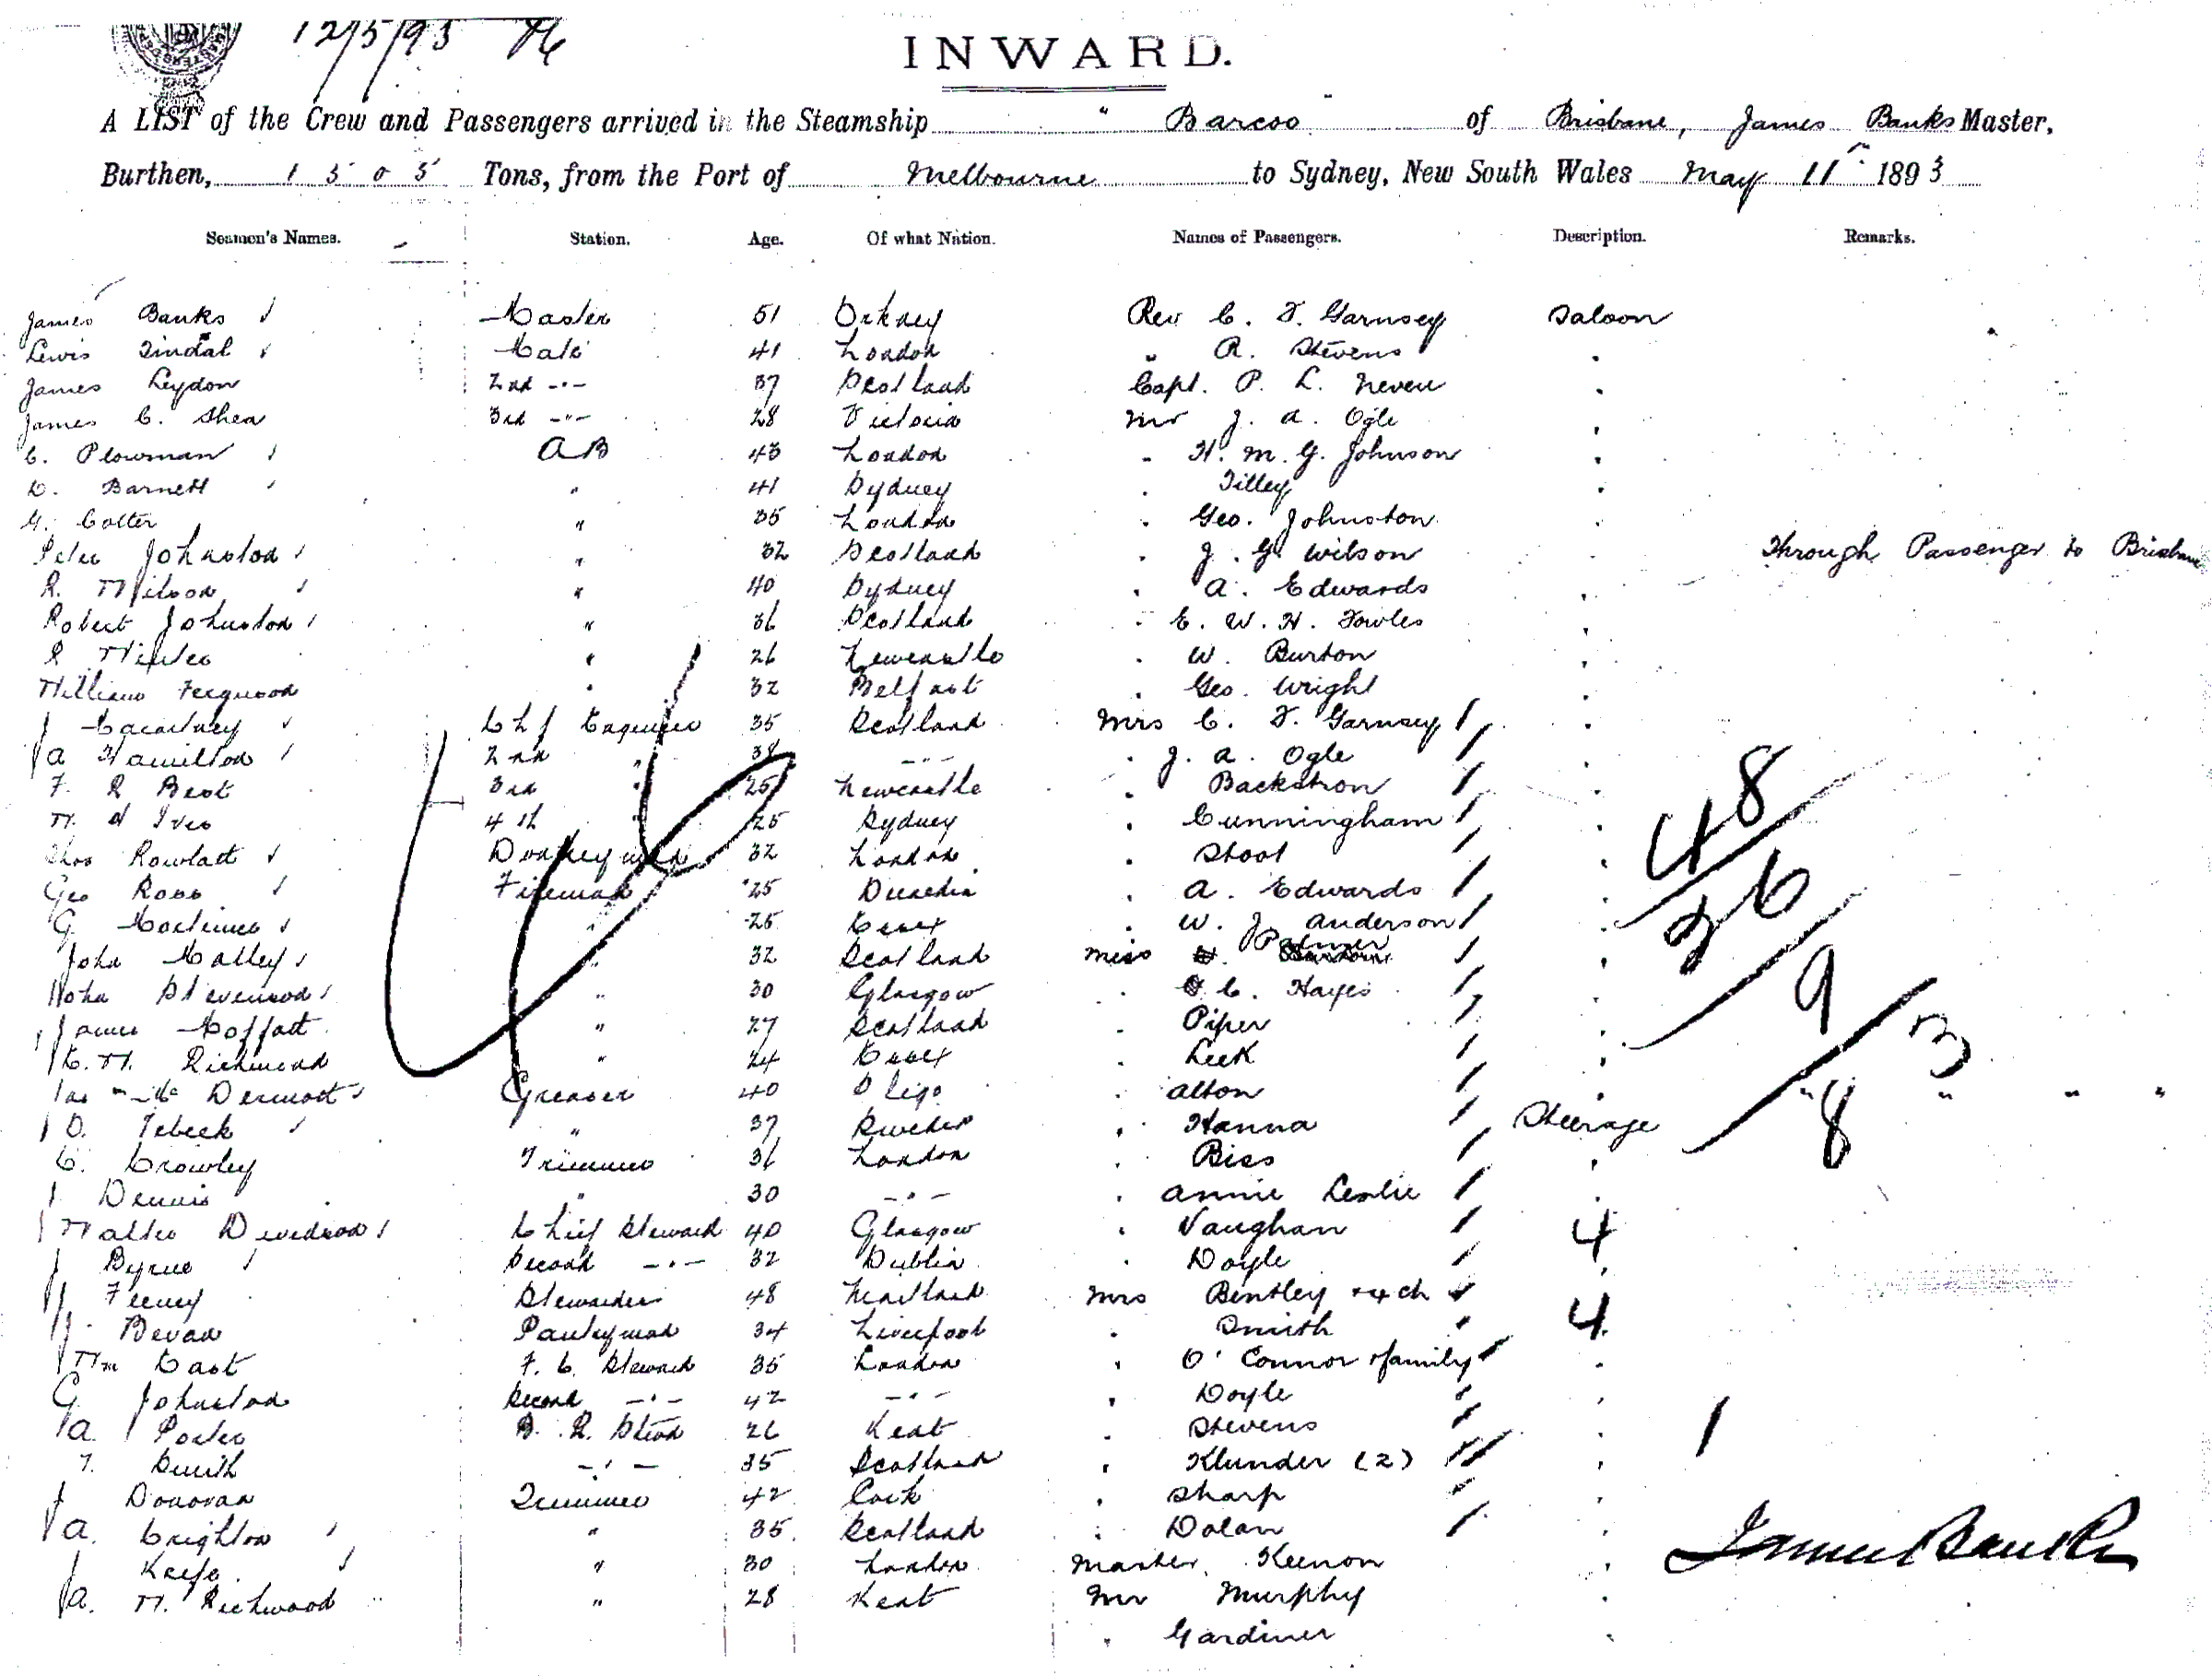 12/5/93
INWARD.
A LIST of the Crew and Passengers arrived in the Steamship " Barcoo " of Brisbane, James Banks Master,
Burthen, 1505 Tons, from the Port of Melbourne to Sydney, New South Wales May 11 1893
Seamen's Names. Station. Age. Of what Nation. Names of Passengers. Description. Remarks.
James Banks Master 51 Orkney Rev C. F. Garnsey Saloon
Lewis Tindal Mate 41 London " A. Stevens "
James Leydon 2nd -"- 37 Scotland Capt. P. L. Neven "
James C. Shea 3rd -"- 28 Victoria Mr J. A. Ogle "
C. Plowman AB 43 London " H. M. G. Johnson "
D. Barnett " 41 Sydney " Tilley "
G. Cotter " 35 London " Geo. Johnston "
Peter Johnston " 32 Scotland " J. G. Wilson " Through Passenger to Brisbane
R. Wilson " 40 Sydney " A. Edwards "
Robert Johnston " 36 Scotland " E. W. H. Fowles "
" 26 Newcastle " W. Burton "
William Ferguson " 32 Belfast " Geo. Wright "
J Macartney Chf Engineer 35 Scotland Mrs C. F. Garnsey "
A Hamilton 2nd " -"- " J. A. Ogle "
F. R Best 3rd " 25 Newcastle " Backstrom "
W. H Ives 4th " 25 Sydney " Cunningham " 48
Thos Rowlatt Donkeyman 32 London " Stoot "
Geo Ross Fireman 25 Dunedin " A. Edwards " 26
G Mortimer " 25 Essex " W. J. Anderson "
John Malley " 32 Scotland Miss Palmer "
John Stevenson " 30 Glasgow " C. Hayes " 9
James Moffatt " 27 Scotland " Piper " 3
E. W. Richmond " 24 Essex " Leek "
Jas McDermott Greaser 40 Sligo " Alton " " 8 " " "
O. Tebeck " 37 Sweden " Hanna Steerage
C. Crowley Trimmer 36 London " Biss "
J Dennis " 30 -"- " Annie Leslie "
Walter Davidson Chief Steward 40 Glasgow " Vaughan 4
J Byrne Second -"- 32 Dublin " Doyle "
J. Feeney Stewardess 48 Maitland Mrs Bentley + 4 ch
J. Bevan Pantryman 34 Liverpool " Smith 4
Wm East F. C. Steward 35 London " O'Connor & family "
G Johnston Second -"- 42 -"- " Doyle "
A. Porter B. R. Stew'd 26 Kent " Stevens " 1
T. Smith -"- 35 Scotland " Klunder (2) "
J Donovan Trimmer 42 Cork " Sharp "
A. Crighton " 35 Scotland " Dolan "
J Keefe " 30 London Master Keenon " James Banks
A. W. Richwood " 28 Kent Mr Murphy "
" Gardiner "